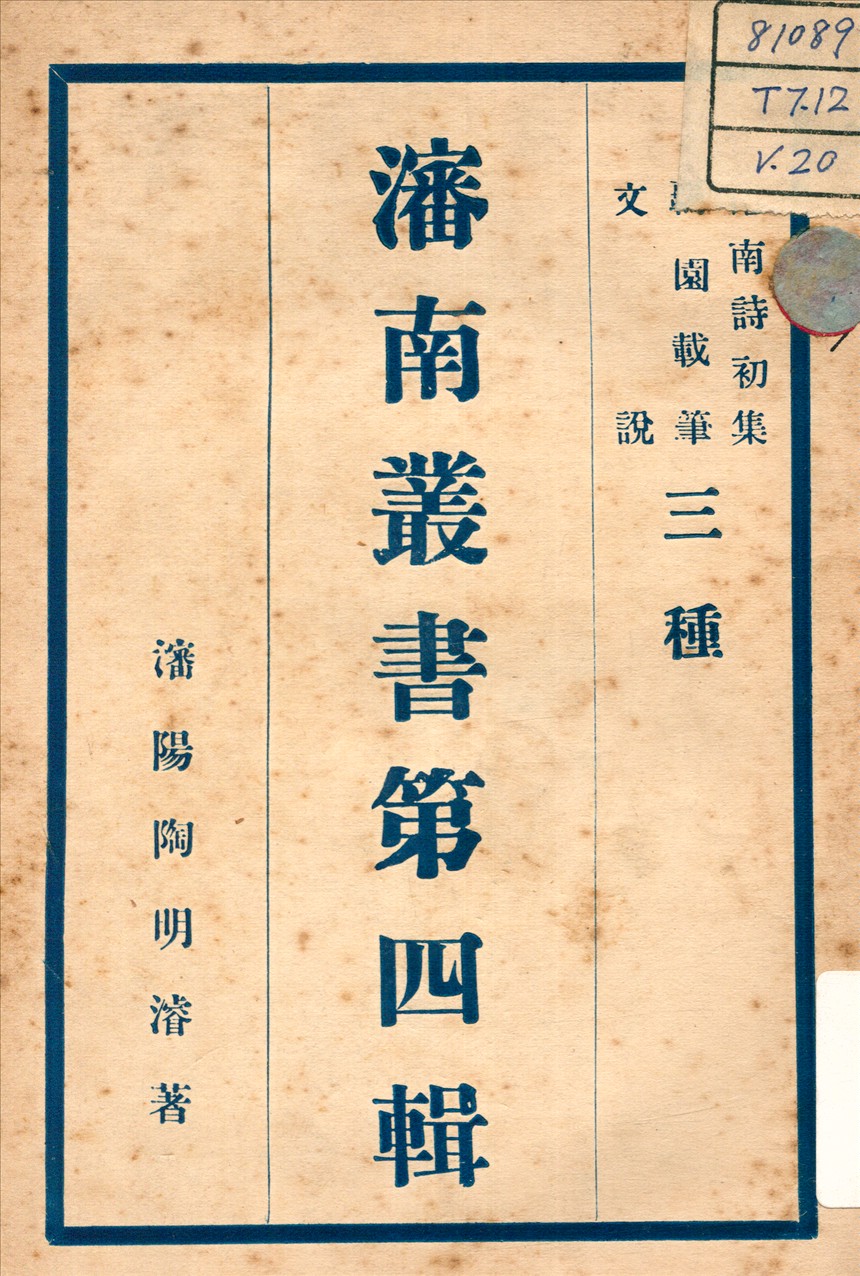 81089
T7.12
V.20
南詩初集
園載筆
文說
三種
瀋南叢書第四輯
瀋陽陶明濬著